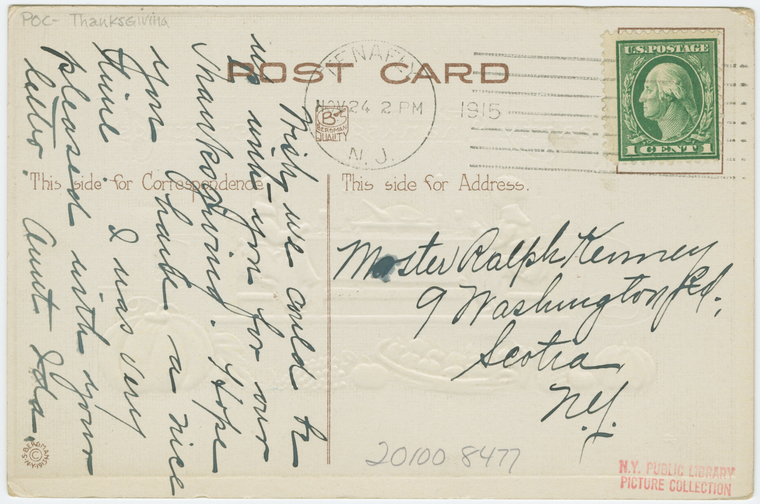 POC- Thanksgiving
POST CARD
TENAFLY
NOV 24 2 PM
1915
N. J.
B
BERGMAN
QUALITY
U.S. POSTAGE
1 CENT 1
This side for Correspondence
This side for Address.
Wish we could be
with you for our
Thanksgiving. Hope
you have a nice
time. I was very
pleased with your
letter. Aunt Ida.
Master Ralph Kenney
9 Washington Rd.
Scotia
N.Y.
S. BERGMAN
20100 8477
N.Y. PUBLIC LIBRARY
PICTURE COLLECTION